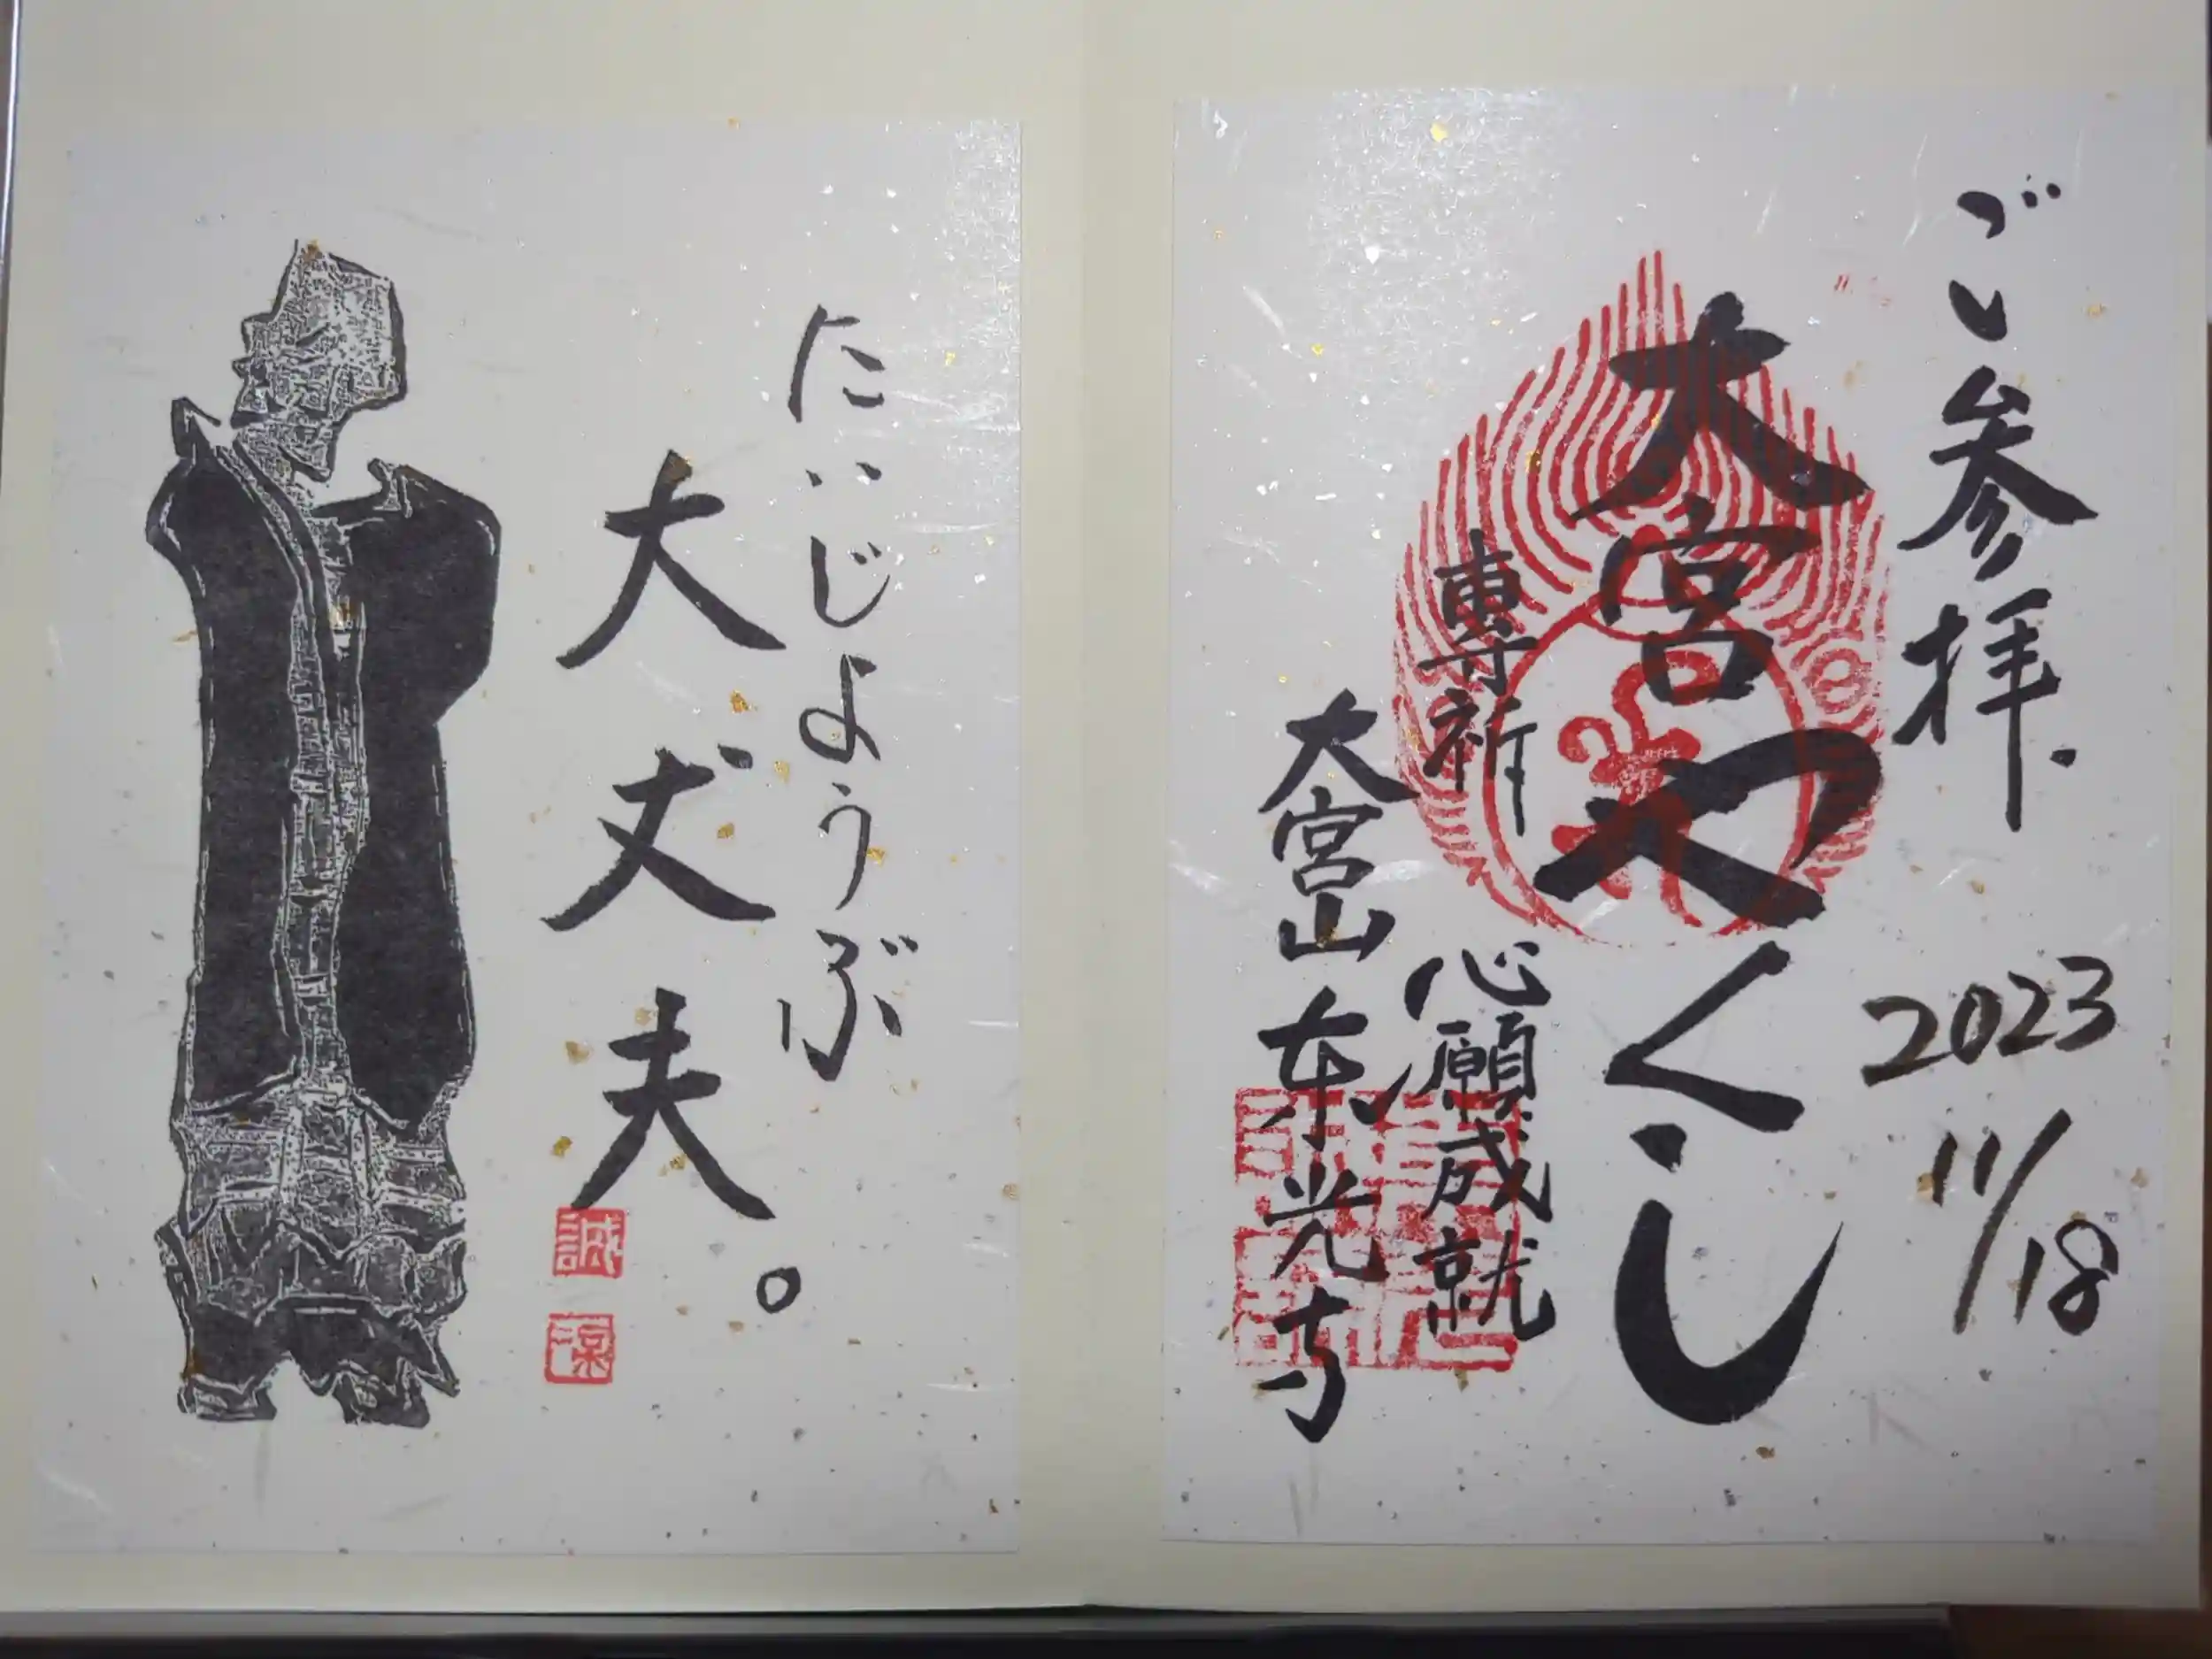 ご参拝.
2023
11/18
大宮やくし
専祈
心願成就
大宮山東光寺
だいじょうぶ
大丈夫。
誠